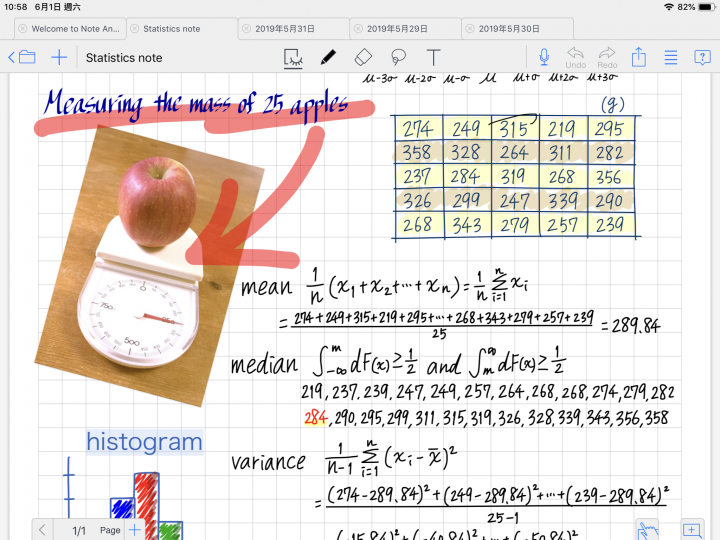 10:58 6月1日 週六 82%
Welcome to Note An... Statistics note 2019年5月31日 2019年5月29日 2019年5月30日
Statistics note T Undo Redo
μ-3σ μ-2σ μ-σ μ μ+σ μ+2σ μ+3σ
Measuring the mass of 25 apples
(g)
274 249 315 219 295
358 328 264 311 282
237 284 319 268 356
326 299 247 339 290
268 343 279 257 239
0
750
250
500
mean 1/n (x₁+x₂+…+xₙ)=1/n Σⁿᵢ₌₁ xᵢ
= 274+249+315+219+295+…+268+343+279+257+239 / 25 = 289.84
median ∫₋∞ᵐ dF(x)≥1/2 and ∫ₘ∞ dF(x)≥1/2
219, 237, 239, 247, 249, 257, 264, 268, 268, 274, 279, 282
284, 290, 295, 299, 311, 315, 319, 326, 328, 339, 343, 356, 358
histogram
variance 1/n-1 Σⁿᵢ₌₁ (xᵢ-x̄)²
= (274-289.84)²+(249-289.84)²+…+(239-289.84)² / 25-1
1/1 Page